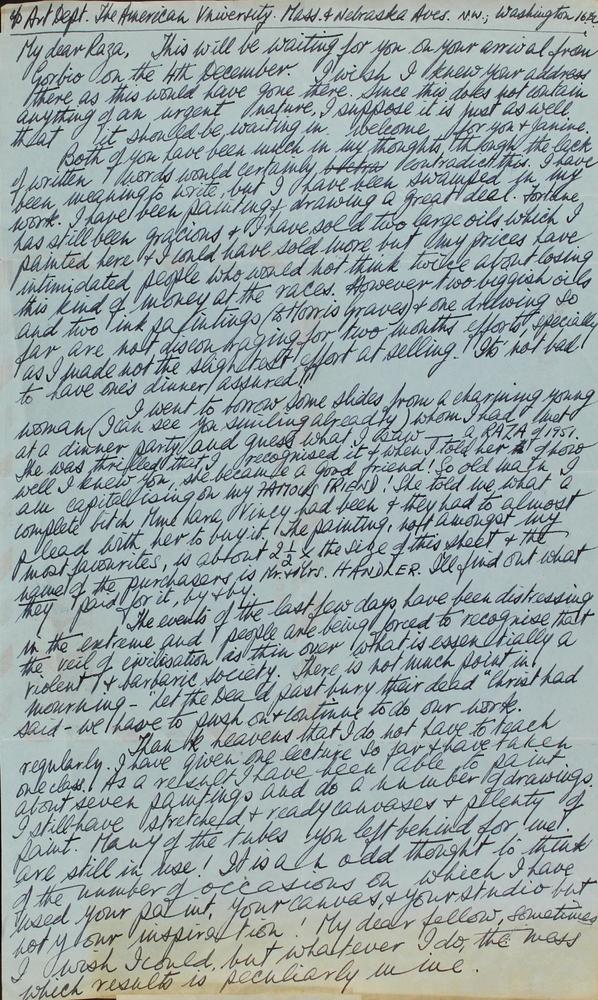 c/o Art Dept. The American University. Mass. & Nebraska Aves. NW., Washington 16 D.C.
My dear Raza, This will be waiting for you on your arrival from
Gorbio on the 4th December. I wish I knew your address
there as this would have gone there. Since this does not contain
anything of an urgent nature, I suppose it is just as well
that it should be waiting in welcome for you & Janine.
Both of you have been much in my thoughts, though the lack
of written words would certainly contradict this. I have
been meaning to write, but I have been swamped in my
work. I have been painting & drawing a great deal. Fortune
has still been gracious & I have sold two large oils which I
painted here & I could have sold more but my prices have
intimidated people who would not think twice about losing
this kind of money at the races. However two biggish oils
and two ink paintings (to Morris Graves) & one drawing so
far are not discouraging for two months efforts specially
as I made not the slightest effort at selling. It's not bad
to have one's dinner assured!!!
I went to borrow some slides from a charming young
woman (I can see you smiling already) whom I had met
at a dinner party and guess what I saw — a RAZA of 1951.
She was thrilled that I recognised it & when I told her of how
well I knew you, she became a good friend! So old man, I
am capitalising on my FAMOUS FRIEND! She told me what a
complete bitch Mme Lara Vincy had been & they had to almost
plead with her to buy it. The painting, not amongst my
most favourites, is about 2 1/2 x the size of this sheet & the
name of the purchasers is Mr. & Mrs. HANDLER. I'll find out what
they paid for it, by & by.
The events of the last few days have been distressing
in the extreme and people are being forced to recognise that
the veil of civilisation is thin over what is essentially a
violent & barbaric society. There is not much point in
mourning - "Let the Dead past bury their dead" Christ had
said - we have to push on & continue to do our work.
Thank heavens that I do not have to teach
regularly. I have given one lecture so far & have taken
one class. As a result I have been able to paint
about seven paintings and do a number of drawings.
I still have stretched & ready canvases & plenty of
paint. Many of the tubes you left behind for me
are still in use! It is an odd thought to think
of the number of occasions on which I have
used your paint, your canvas & your studio but
not your inspiration. My dear fellow, sometimes
I wish I could, but whatever I do, the mess
which results is peculiarly mine.